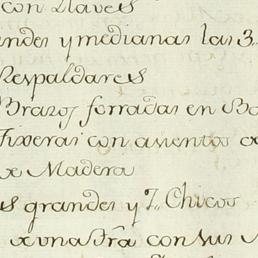 con llaves
andes y medianas las 3
Respaldares
Brazos forradas en Ba
Tixeras con asientos
de Madera
us grandes y 7. Chicos
una fra con sus